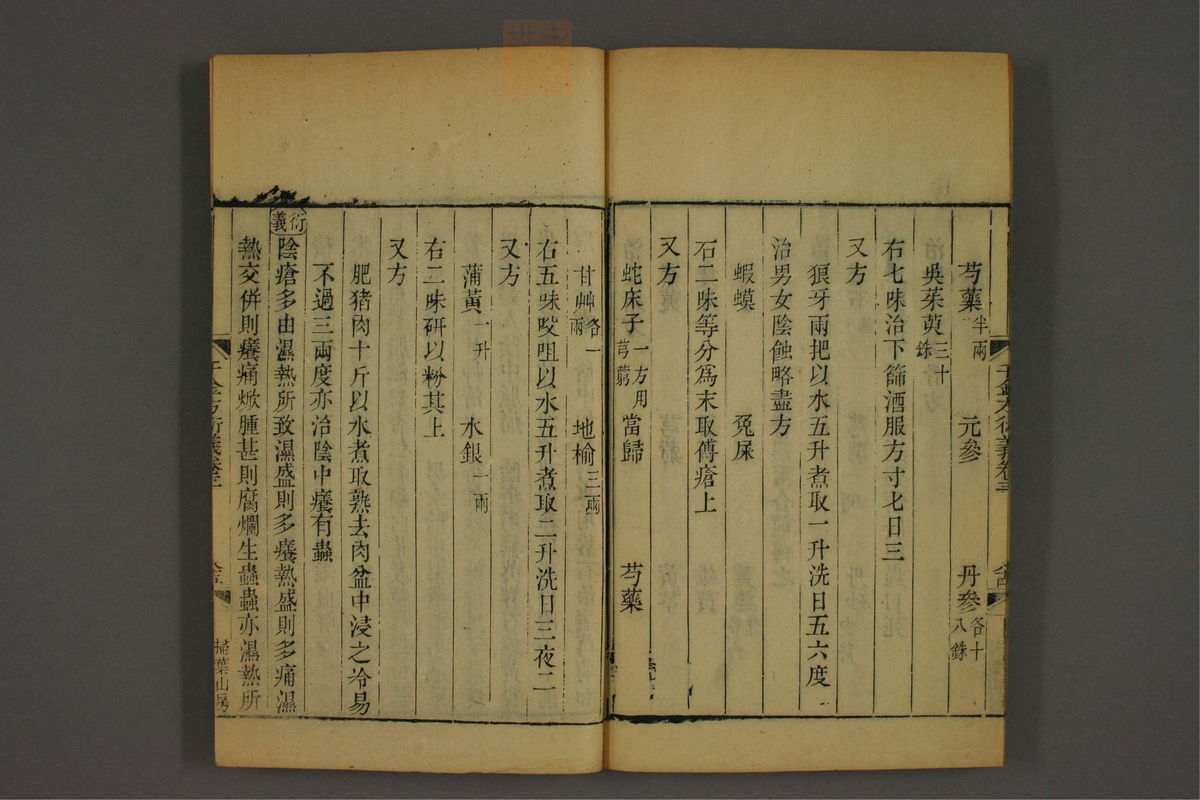 芍藥半兩 元參 丹參各十八銖
吳茱萸三十銖
右七味治下篩酒服方寸匕日三
又方
狼牙兩把以水五升煮取一升洗日五六度
治男女陰蝕略盡方
蝦蟆 兔屎
石二味等分為末取傅瘡上
又方
蛇床子一方用芎藭 當歸 芍藥
甘艸各一兩 地榆三兩
右五味㕮咀以水五升煮取二升洗日三夜二
又方
蒲黃一升 水銀一兩
右二味研以粉其上
又方
肥猪肉十斤以水煮取熟去肉盆中浸之冷易
不過三兩度亦治陰中癢有蟲
衍義 陰瘡多由濕熱所致濕盛則多癢熱盛則多痛濕
熱交併則癢痛焮腫甚則腐爛生蟲蟲亦濕熱所
千金方衍義卷三
掃葉山房